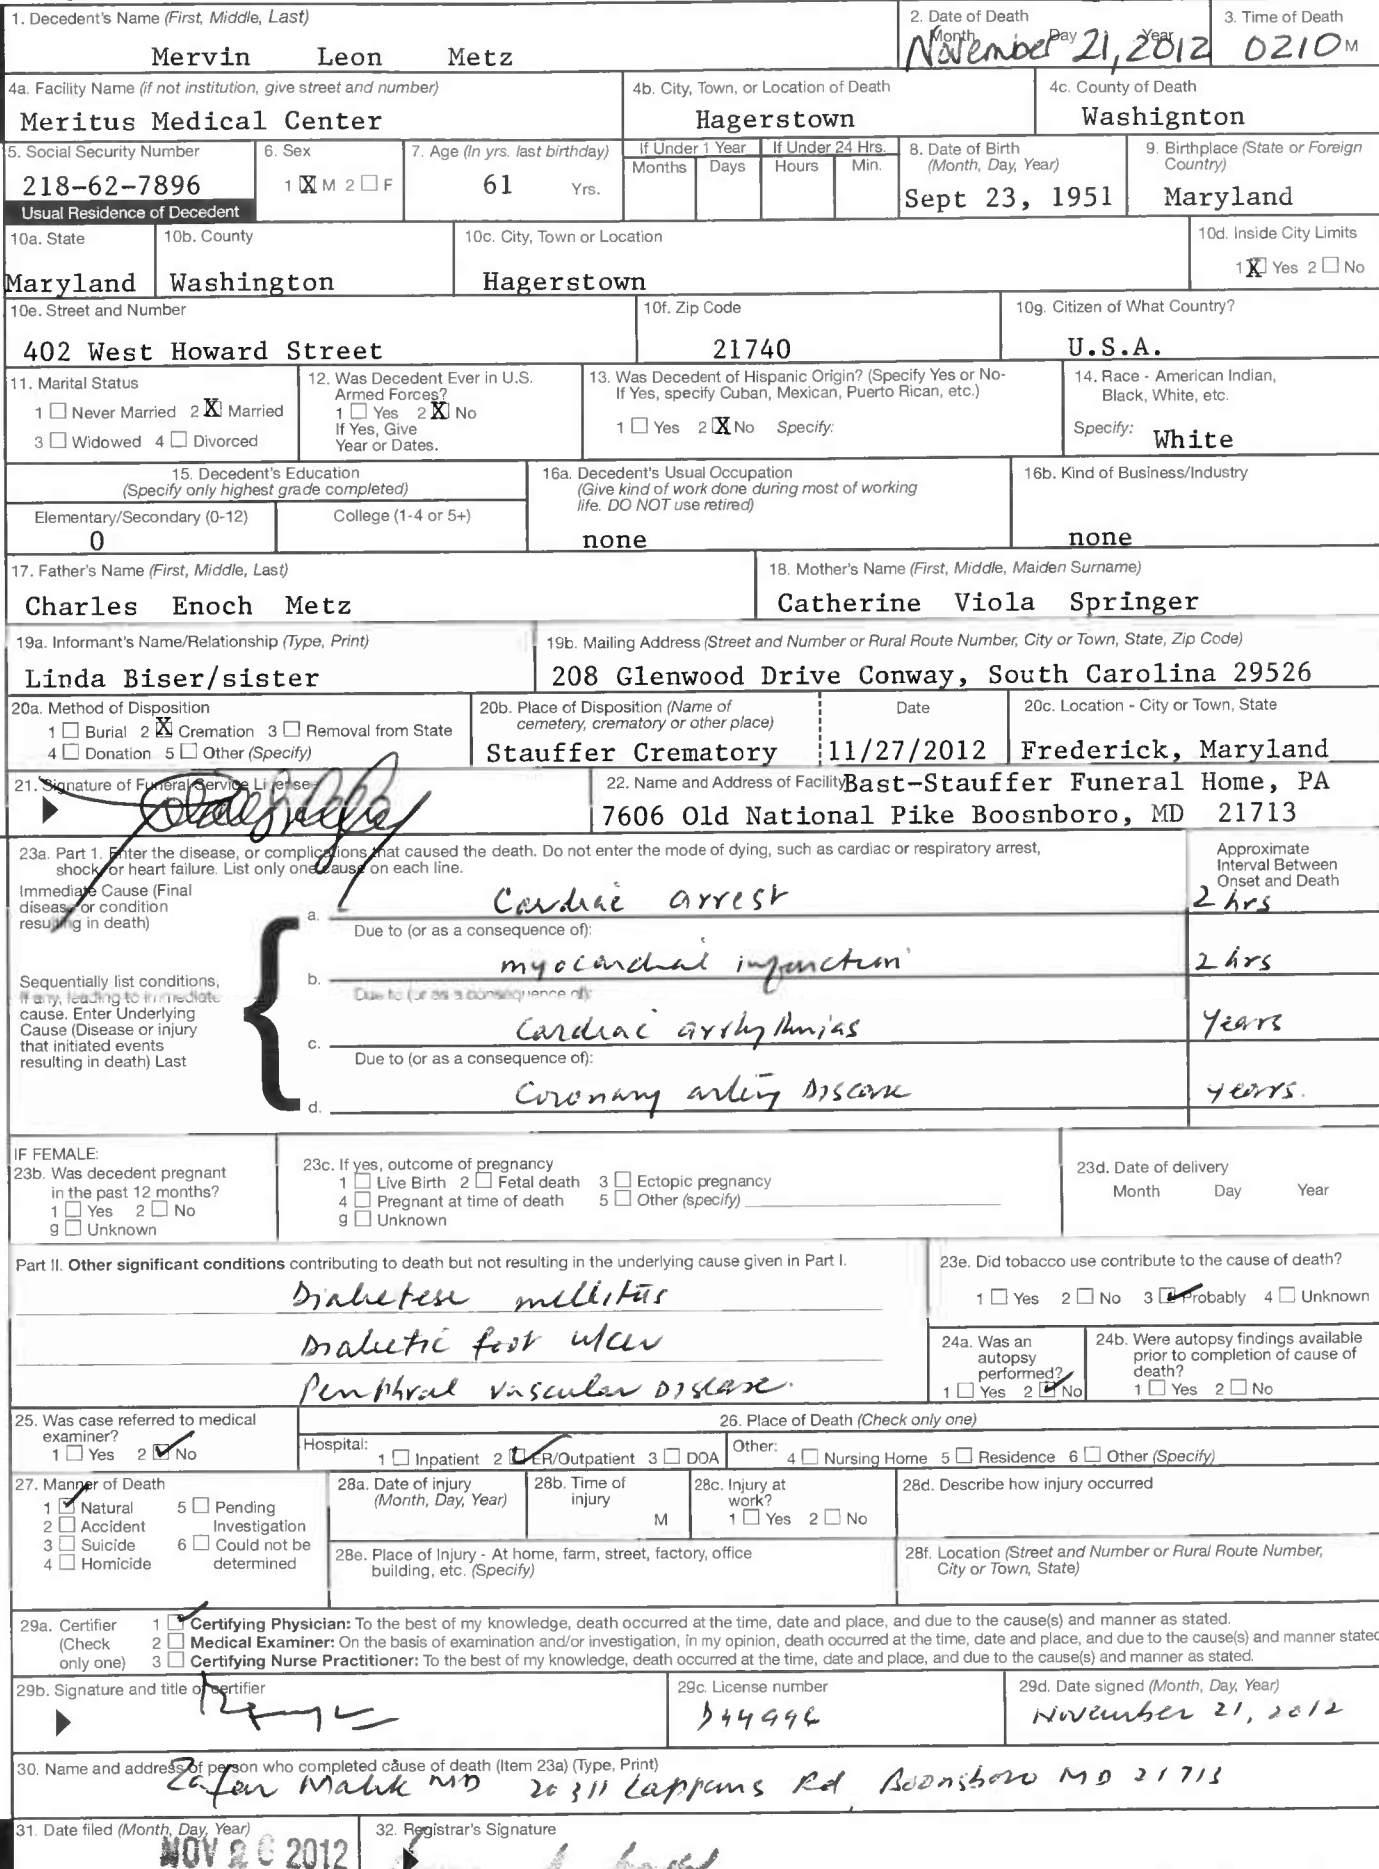 1. Decedent's Name (First, Middle, Last)
Mervin Leon Metz
2. Date of Death
Month Day Year
November 21, 2012
3. Time of Death
0210 M
4a. Facility Name (if not institution, give street and number)
Meritus Medical Center
4b. City, Town, or Location of Death
Hagerstown
4c. County of Death
Washignton
5. Social Security Number
218-62-7896
6. Sex
1 X M 2 ☐ F
7. Age (In yrs. last birthday)
61 Yrs.
If Under 1 Year
Months Days
If Under 24 Hrs.
Hours Min.
8. Date of Birth
(Month, Day, Year)
Sept 23, 1951
9. Birthplace (State or Foreign
Country)
Maryland
Usual Residence of Decedent
10a. State
Maryland
10b. County
Washington
10c. City, Town or Location
Hagerstown
10d. Inside City Limits
1 X Yes 2 ☐ No
10e. Street and Number
402 West Howard Street
10f. Zip Code
21740
10g. Citizen of What Country?
U.S.A.
11. Marital Status
1 ☐ Never Married 2 X Married
3 ☐ Widowed 4 ☐ Divorced
12. Was Decedent Ever in U.S.
Armed Forces?
1 ☐ Yes 2 X No
If Yes, Give
Year or Dates.
13. Was Decedent of Hispanic Origin? (Specify Yes or No-
If Yes, specify Cuban, Mexican, Puerto Rican, etc.)
1 ☐ Yes 2 X No Specify:
14. Race - American Indian,
Black, White, etc.
Specify: White
15. Decedent's Education
(Specify only highest grade completed)
Elementary/Secondary (0-12)
0
College (1-4 or 5+)
16a. Decedent's Usual Occupation
(Give kind of work done during most of working
life. DO NOT use retired)
none
16b. Kind of Business/Industry
none
17. Father's Name (First, Middle, Last)
Charles Enoch Metz
18. Mother's Name (First, Middle, Maiden Surname)
Catherine Viola Springer
19a. Informant's Name/Relationship (Type, Print)
Linda Biser/sister
19b. Mailing Address (Street and Number or Rural Route Number, City or Town, State, Zip Code)
208 Glenwood Drive Conway, South Carolina 29526
20a. Method of Disposition
1 ☐ Burial 2 X Cremation 3 ☐ Removal from State
4 ☐ Donation 5 ☐ Other (Specify)
20b. Place of Disposition (Name of
cemetery, crematory or other place)
Stauffer Crematory
Date
11/27/2012
20c. Location - City or Town, State
Frederick, Maryland
21. Signature of Funeral Service Licensee
22. Name and Address of Facility Bast-Stauffer Funeral Home, PA
7606 Old National Pike Boosnboro, MD 21713
23a. Part 1. Enter the disease, or complications that caused the death. Do not enter the mode of dying, such as cardiac or respiratory arrest,
shock, or heart failure. List only one cause on each line.
Approximate
Interval Between
Onset and Death
Immediate Cause (Final
disease or condition
resulting in death)
a. Cardiac arrest 2 hrs
Due to (or as a consequence of):
b. myocardial infarction 2 hrs
Sequentially list conditions,
if any, leading to immediate
cause. Enter Underlying
Cause (Disease or injury
that initiated events
resulting in death) Last
Due to (or as a consequence of):
c. Cardiac arrhythmias Years
Due to (or as a consequence of):
d. Coronary artery Disease years.
IF FEMALE:
23b. Was decedent pregnant
in the past 12 months?
1 ☐ Yes 2 ☐ No
9 ☐ Unknown
23c. If yes, outcome of pregnancy
1 ☐ Live Birth 2 ☐ Fetal death 3 ☐ Ectopic pregnancy
4 ☐ Pregnant at time of death 5 ☐ Other (specify)
9 ☐ Unknown
23d. Date of delivery
Month Day Year
Part II. Other significant conditions contributing to death but not resulting in the underlying cause given in Part I.
Diabetese mellitus
Diabetic foot ulcer
Periphral vascular Disease.
23e. Did tobacco use contribute to the cause of death?
1 ☐ Yes 2 ☐ No 3 ☑ Probably 4 ☐ Unknown
24a. Was an
autopsy
performed?
1 ☐ Yes 2 ☑ No
24b. Were autopsy findings available
prior to completion of cause of
death?
1 ☐ Yes 2 ☐ No
25. Was case referred to medical
examiner?
1 ☐ Yes 2 ☑ No
26. Place of Death (Check only one)
Hospital: 1 ☐ Inpatient 2 ☑ ER/Outpatient 3 ☐ DOA
Other: 4 ☐ Nursing Home 5 ☐ Residence 6 ☐ Other (Specify)
27. Manner of Death
1 ☑ Natural 5 ☐ Pending
2 ☐ Accident Investigation
3 ☐ Suicide 6 ☐ Could not be
4 ☐ Homicide determined
28a. Date of injury
(Month, Day, Year)
28b. Time of
injury
M
28c. Injury at
work?
1 ☐ Yes 2 ☐ No
28d. Describe how injury occurred
28e. Place of Injury - At home, farm, street, factory, office
building, etc. (Specify)
28f. Location (Street and Number or Rural Route Number,
City or Town, State)
29a. Certifier
(Check
only one)
1 ☑ Certifying Physician: To the best of my knowledge, death occurred at the time, date and place, and due to the cause(s) and manner as stated.
2 ☐ Medical Examiner: On the basis of examination and/or investigation, in my opinion, death occurred at the time, date and place, and due to the cause(s) and manner stated
3 ☐ Certifying Nurse Practitioner: To the best of my knowledge, death occurred at the time, date and place, and due to the cause(s) and manner as stated.
29b. Signature and title of certifier
29c. License number
D44996
29d. Date signed (Month, Day, Year)
November 21, 2012
30. Name and address of person who completed cause of death (Item 23a) (Type, Print)
Zafar Malik MD 20311 Lappans Rd, Boonsboro MD 21713
31. Date filed (Month, Day, Year)
NOV 26 2012
32. Registrar's Signature